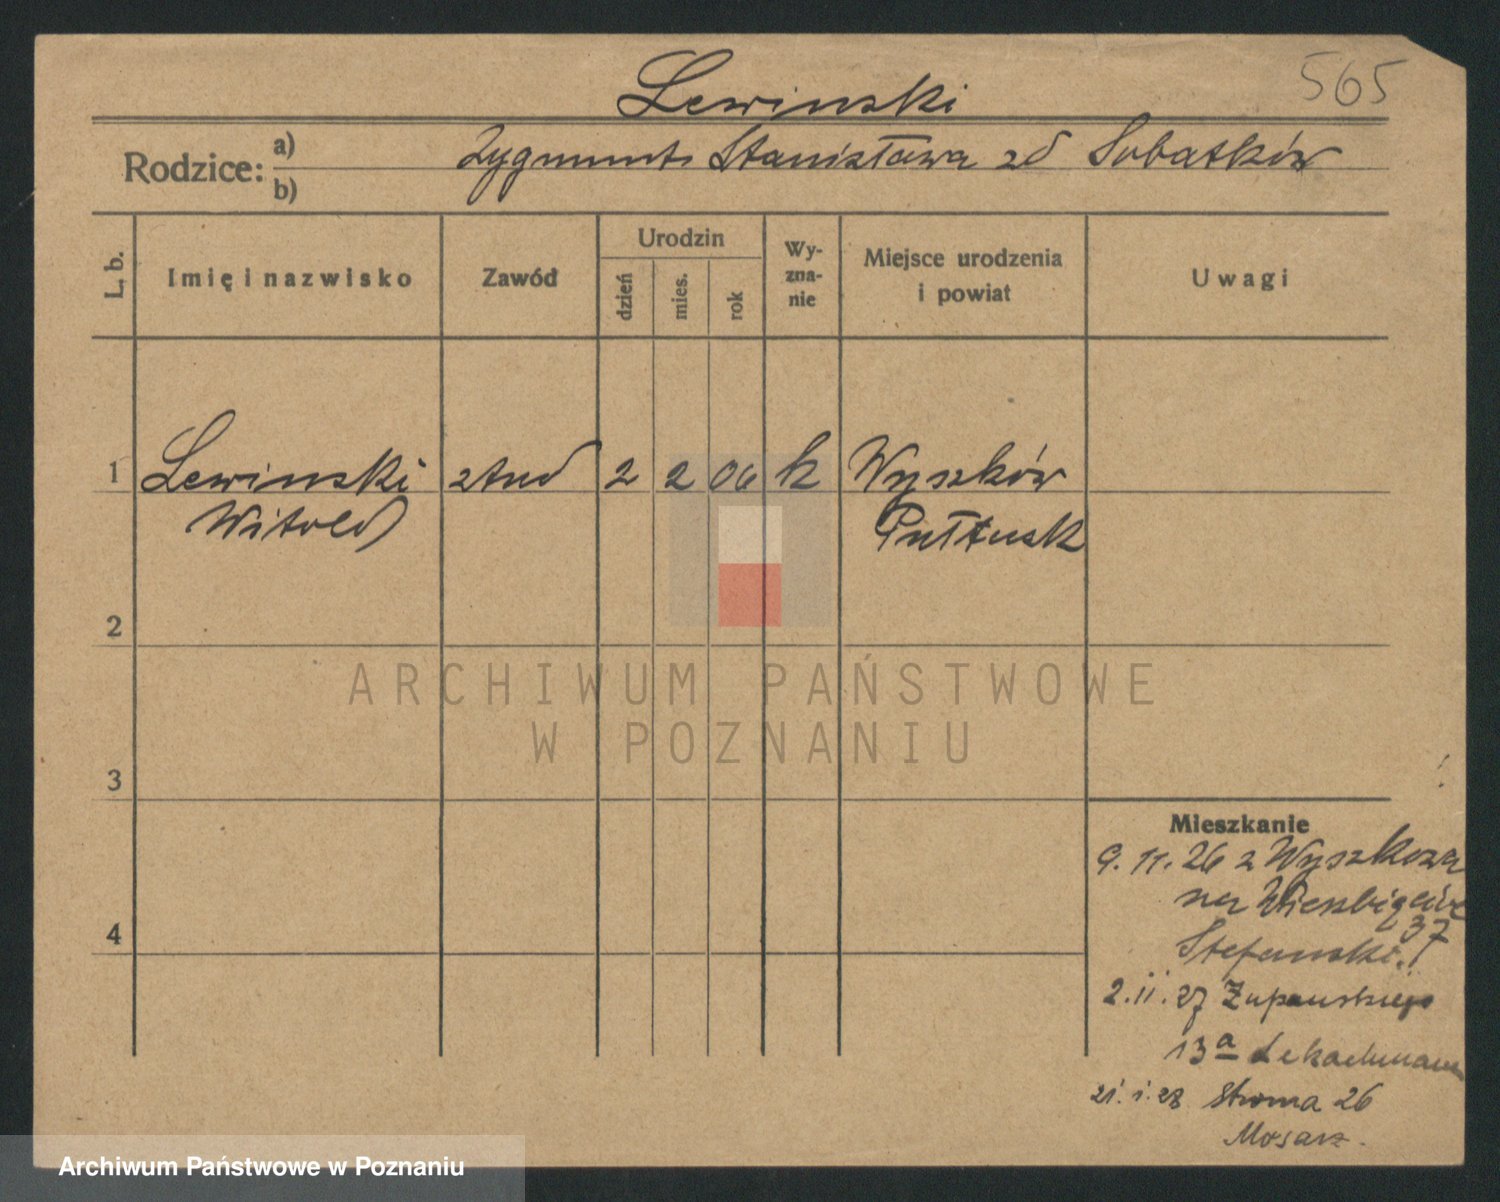 Lewinski
565
Rodzice: a) Zygmunt Stanisława zd Sobatków
b)
L. b. Imię i nazwisko Zawód Urodzin dzień mies. rok Wy-zna-nie Miejsce urodzenia i powiat Uwagi
1 Lewinski stud 2 2 06 k Wyszków
Witold Pułtusk
2
3
4
Mieszkanie
9.11.26 z Wyszkowa
na
37
Stefanski
2.II.27 Żupanskiego
13a
21.I.28 Stroma 26
Mosarz.
ARCHIWUM PAŃSTWOWE
W POZNANIU
Archiwum Państwowe w Poznaniu